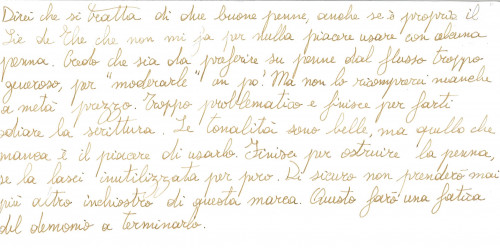 Direi che si tratta di due buone penne, anche se è proprio il
Lie de Thé che non mi fa per nulla piacere usare con alcuna
penna. Credo che sia da preferire su penne dal flusso troppo
generoso, per "moderarle" un po'. Ma non lo ricomprerei neanche
a metà prezzo. Troppo problematico e finisce per farti
odiare la scrittura. Le tonalità sono belle, ma quello che
manca è il piacere di usarlo. Finisce per ostruire la penna,
se la lasci inutilizzata per un po'. Di sicuro non prenderò mai
più altro inchiostro di questa marca. Questo farò una fatica
del demonio a terminarlo.